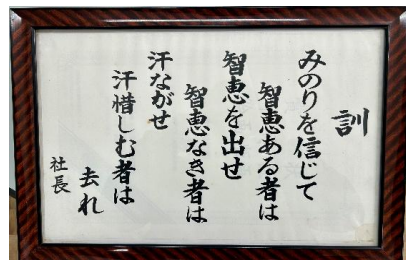 訓
みのりを信じて
智恵ある者は
智恵を出せ
智恵なき者は
汗ながせ
汗惜しむ者は
去れ
社長